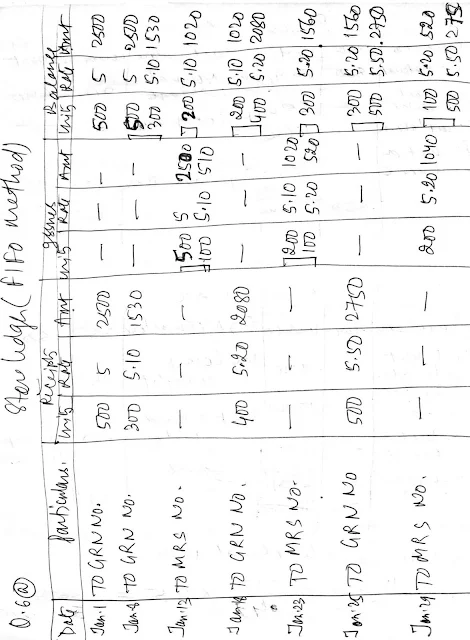 Q.6(a) Store ledger (FIFO method)
Date Particulars. Receipts Issues Balance
Units Rate Amt Units Rate Amt Units Rate Amt
Jan.1 TO GRN NO. 500 5 2500 — — — 500 5 2500
Jan.8 TO GRN NO. 300 5.10 1530 — — — 500 5 2500
300 5.10 1530
Jan.13 TO MRS NO. — — — 500 5 2500 200 5.10 1020
100 5.10 510
Jan.18 TO GRN NO. 400 5.20 2080 — — — 200 5.10 1020
400 5.20 2080
Jan.23 TO MRS NO. — — — 200 5.10 1020 300 5.20 1560
100 5.20 520
Jan.25 TO GRN NO 500 5.50 2750 — — — 300 5.20 1560
500 5.50 2750
Jan.29 TO MRS NO. — — — 200 5.20 1040 100 5.20 520
500 5.50 2750